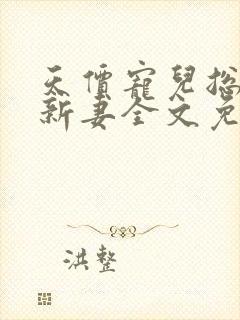 天價寵兒總
新妻全文免
洪整